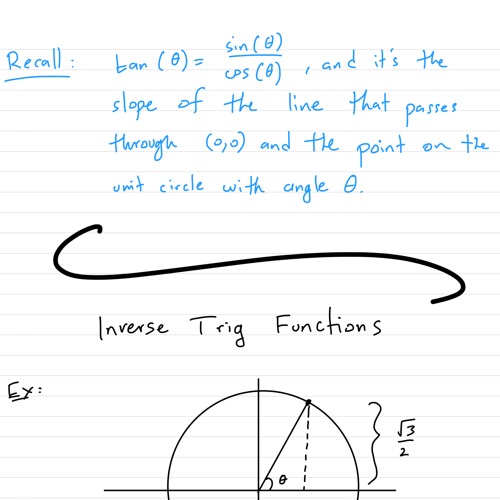 Recall: tan(θ) = sin(θ)/cos(θ), and it's the
slope of the line that passes
through (0,0) and the point on the
unit circle with angle θ.
Inverse Trig Functions
Ex:
√3/2
θ